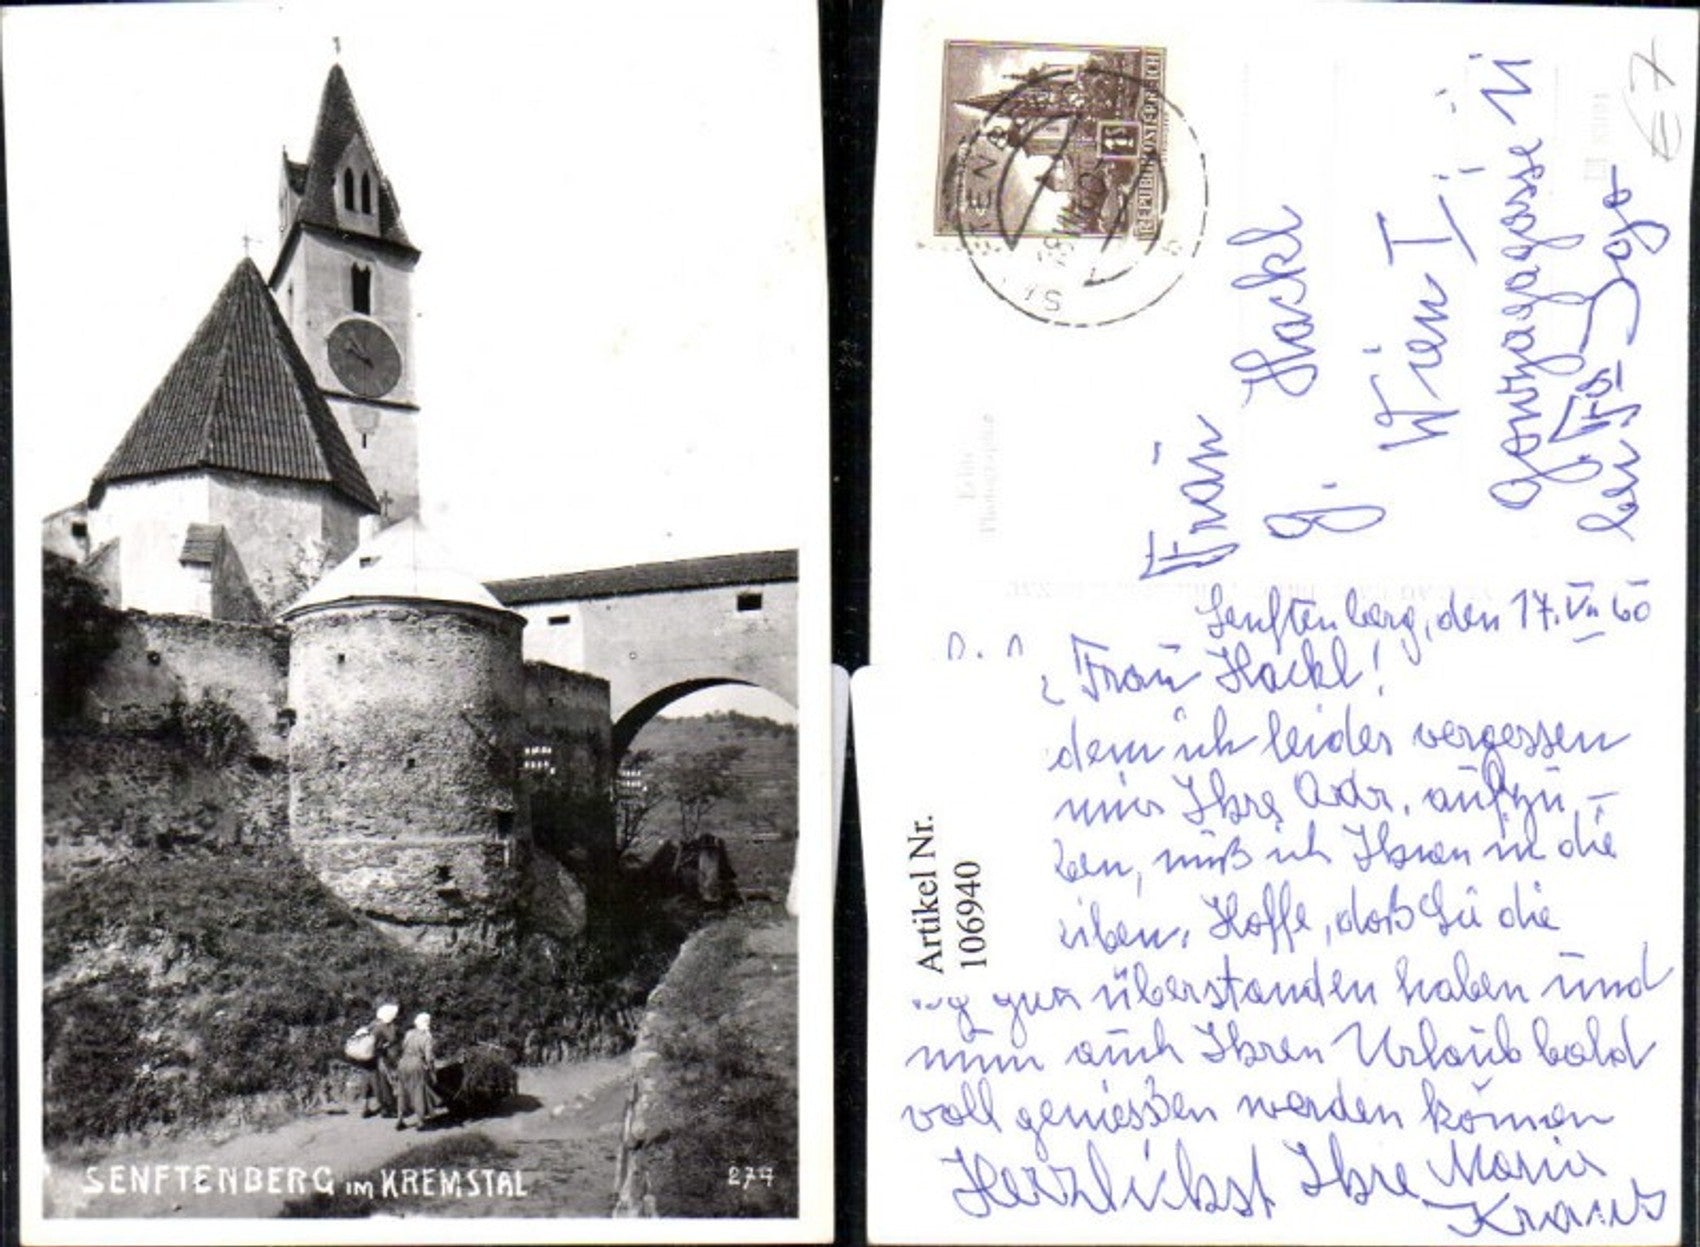 SENFTENBERG im KREMSTAL
274
REPUBLIK ÖSTERREICH
1S
€ 7
Frau
Hackl
g.
Wien I
Gonzagagasse 11
Senftenberg, den 17. VII 60
Frau Hackl!
dem ich leider vergessen
mir Ihre Adr. aufzu-
ben, muß ich Ihnen in die
iben. Hoffe, daß Sie die
gut überstanden haben und
nun auch Ihren Urlaub bald
voll genießen werden können
Herzlichst Ihre Maria
Kraus
Artikel Nr.
106940